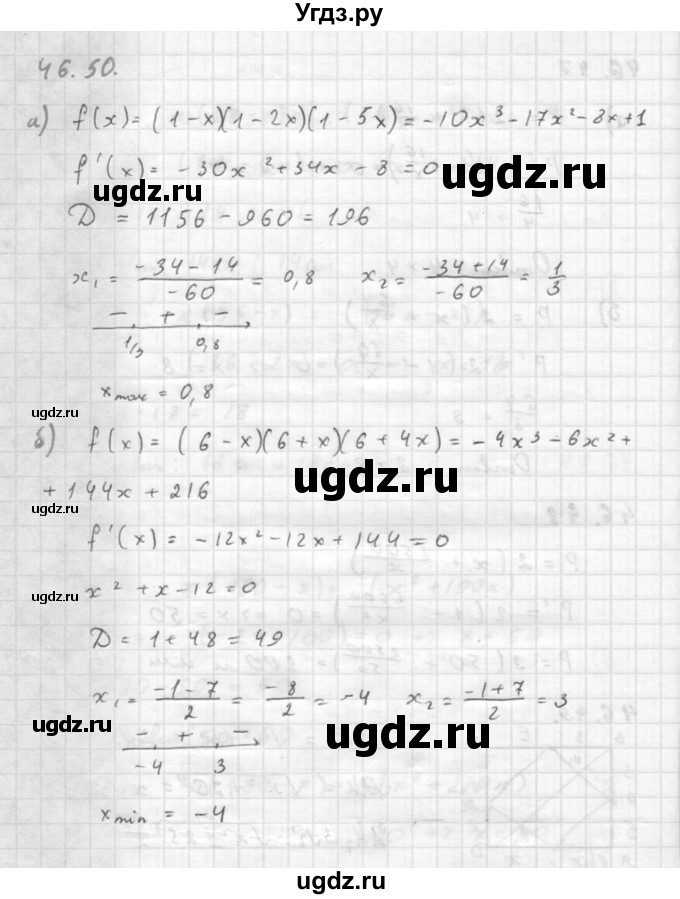 Угдз.ру
46.50.
а) f(x) = (1-x)(1-2x)(1-5x) = -10x³-17x²-8x+1
f'(x) = -30x²+34x-8=0
ugdz.ru
ugdz.ru
D = 1156-960=196
x₁ = (-34-14)/(-60) = 0,8 x₂ = (-34+14)/(-60) = 1/3
- + -
1/3 0,8
x max = 0,8
ugdz.ru
б) f(x) = (6-x)(6+x)(6+4x) = -4x³-6x²+
ugdz.ru
+144x+216
ugdz.ru
f'(x) = -12x²-12x+144=0
x²+x-12=0
ugdz.ru
D = 1+48=49
x₁ = (-1-7)/2 = -8/2 = -4 x₂ = (-1+7)/2 = 3
ugdz.ru
ugdz.ru
- + -
-4 3
x min = -4
ugdz.ru
ugdz.ru